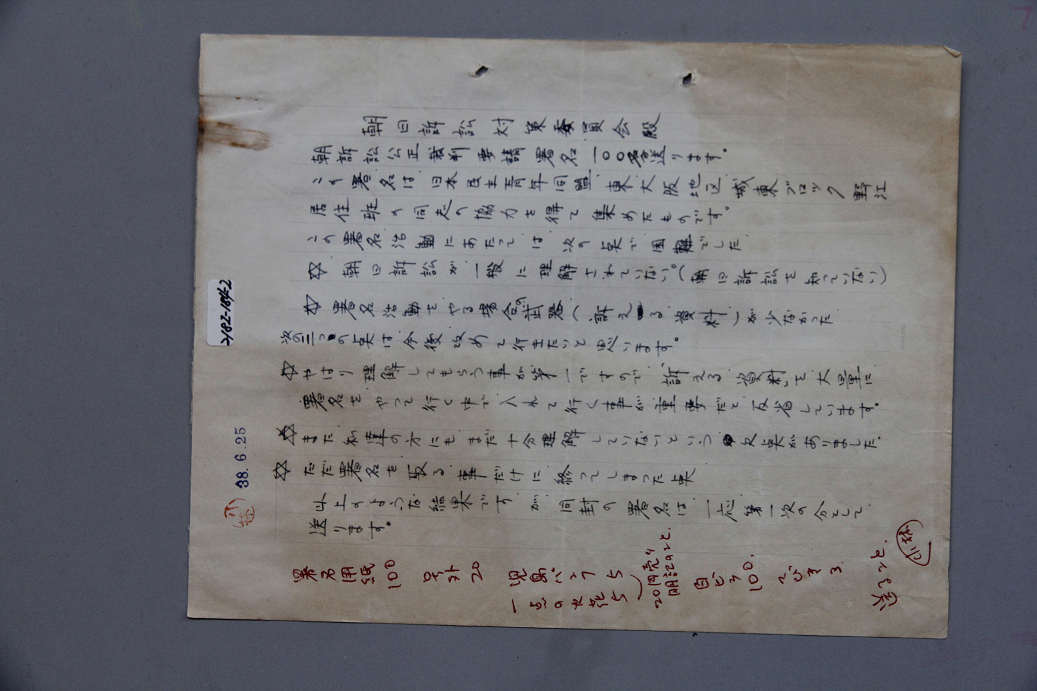 朝日訴訟対策委員会殿
朝訴訟公正裁判要請署名一〇〇名送ります。
この署名は日本民主青年同盟東大阪地区城東ブロック野江
居住班の同志の協力を得て集めたものです。
この署名活動にあたっては次の点で困難でした
☆朝日訴訟が一般に理解されていない。(朝日訴訟を知っていない)
☆署名活動をやる場合の武器(訴える資料)が少なかった
次の三つの点は今後改めて行きたいと思います。
☆やはり理解してもらう事が第一ですので訴える資料を大量に
署名をやって行く中で入れて行く事が重要だと反省しています。
☆また私達の方にもまだ十分理解していないという欠点がありました。
☆ただ署名を取る事だけに終ってしまった点
以上のような結果ですが同封の署名は一応第一次の分として
送ります。
署名用紙 100
号外 20
児島パンフ 5
一点の火花 5
20円売り
明記のこと。
白ビラ 100.
3.
送ること。
38.6.25